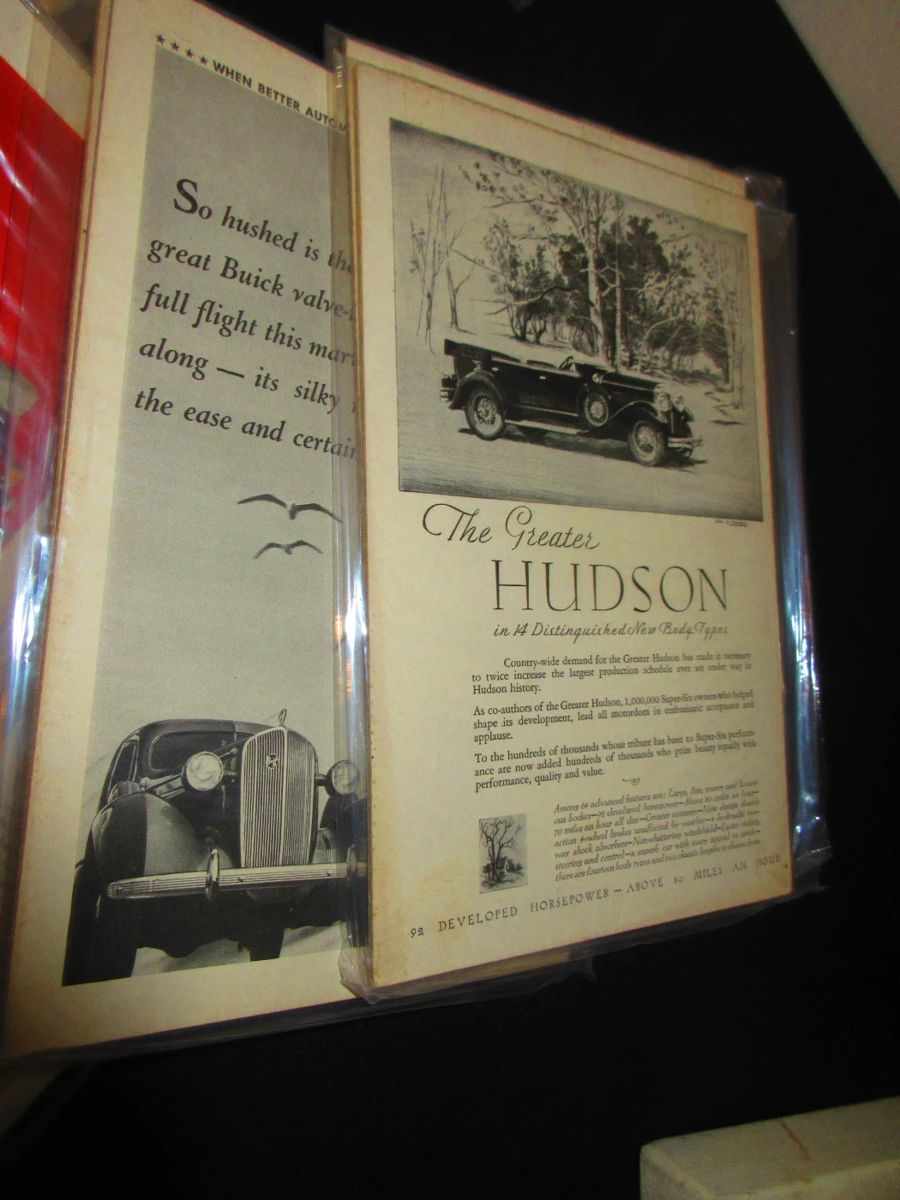 ★★★★ WHEN BETTER AUTOM
So hushed is the
great Buick valve-
full flight this mar
along — its silky
the ease and certain
The Greater
HUDSON
in 14 Distinguished New Body Types
Country-wide demand for the Greater Hudson has made it necessary
to twice increase the largest production schedule ever set under way in
Hudson history.
As co-authors of the Greater Hudson, 1,000,000 Super-Six owners who helped
shape its development, lead all motordom in enthusiastic acceptance and
applause.
To the hundreds of thousands whose tribute has been to Super-Six perform-
ance are now added hundreds of thousands who prize beauty equally with
performance, quality and value.
Among 64 advanced features are: Large, fine, roomy and luxuri-
ous bodies—92 developed horsepower—Above 80 miles an hour—
70 miles an hour all day—Greater economy—New design double
action 4-wheel brakes unaffected by weather—4 hydraulic two-
way shock absorbers—Non-shattering windshield—Easier riding,
steering and control—a superb car with every appeal to pride—
there are fourteen body types and two chassis lengths to choose from.
92 DEVELOPED HORSEPOWER — ABOVE 80 MILES AN HOUR